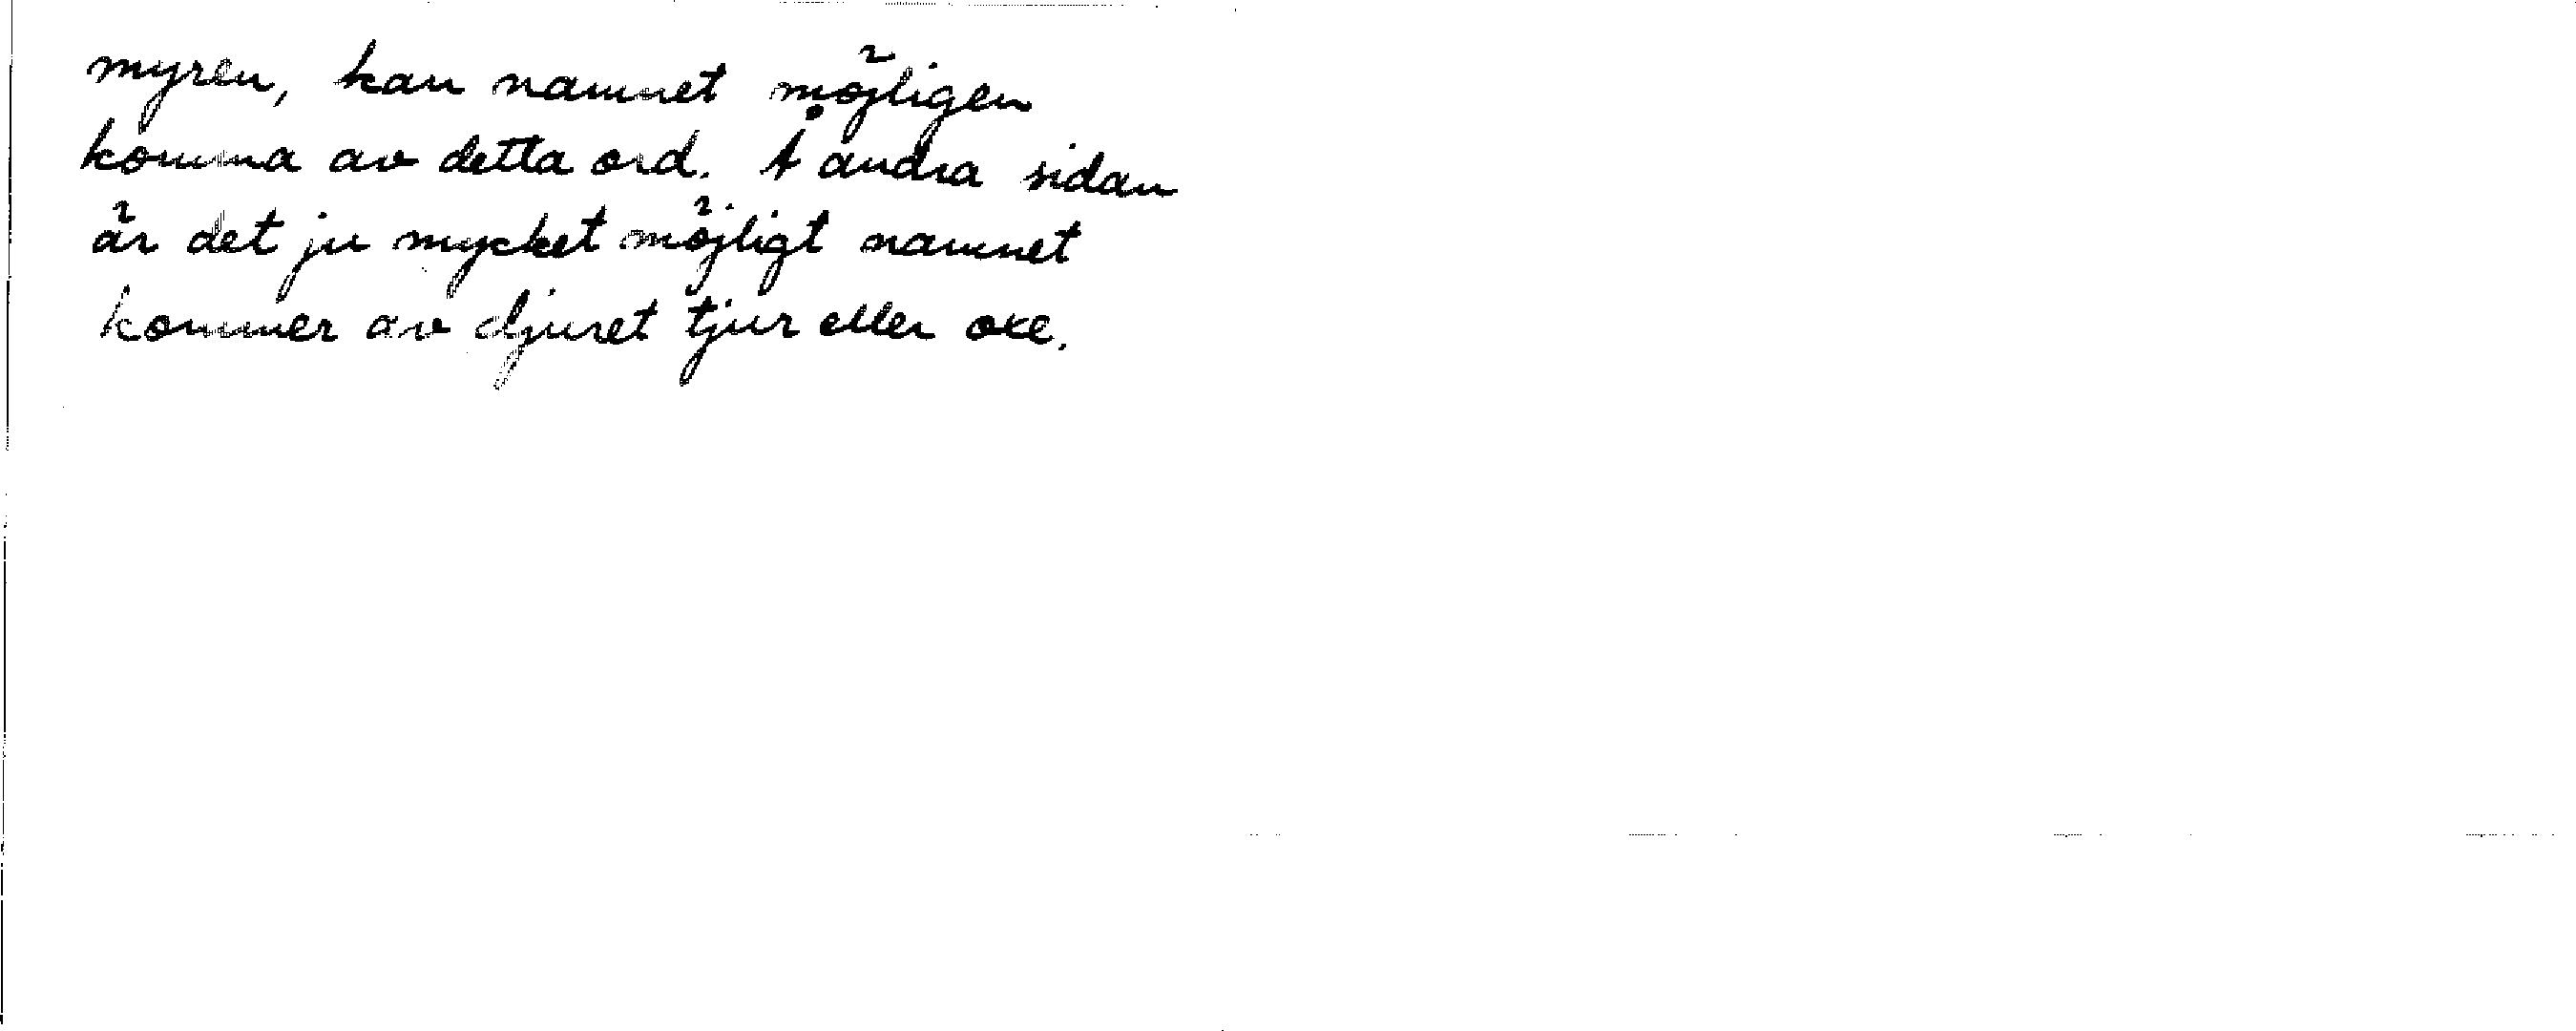 myren, kan namnet möjligen
komma av detta ord. Å andra sidan
är det ju mycket möjligt namnet
kommer av djuret tjur eller oxe.